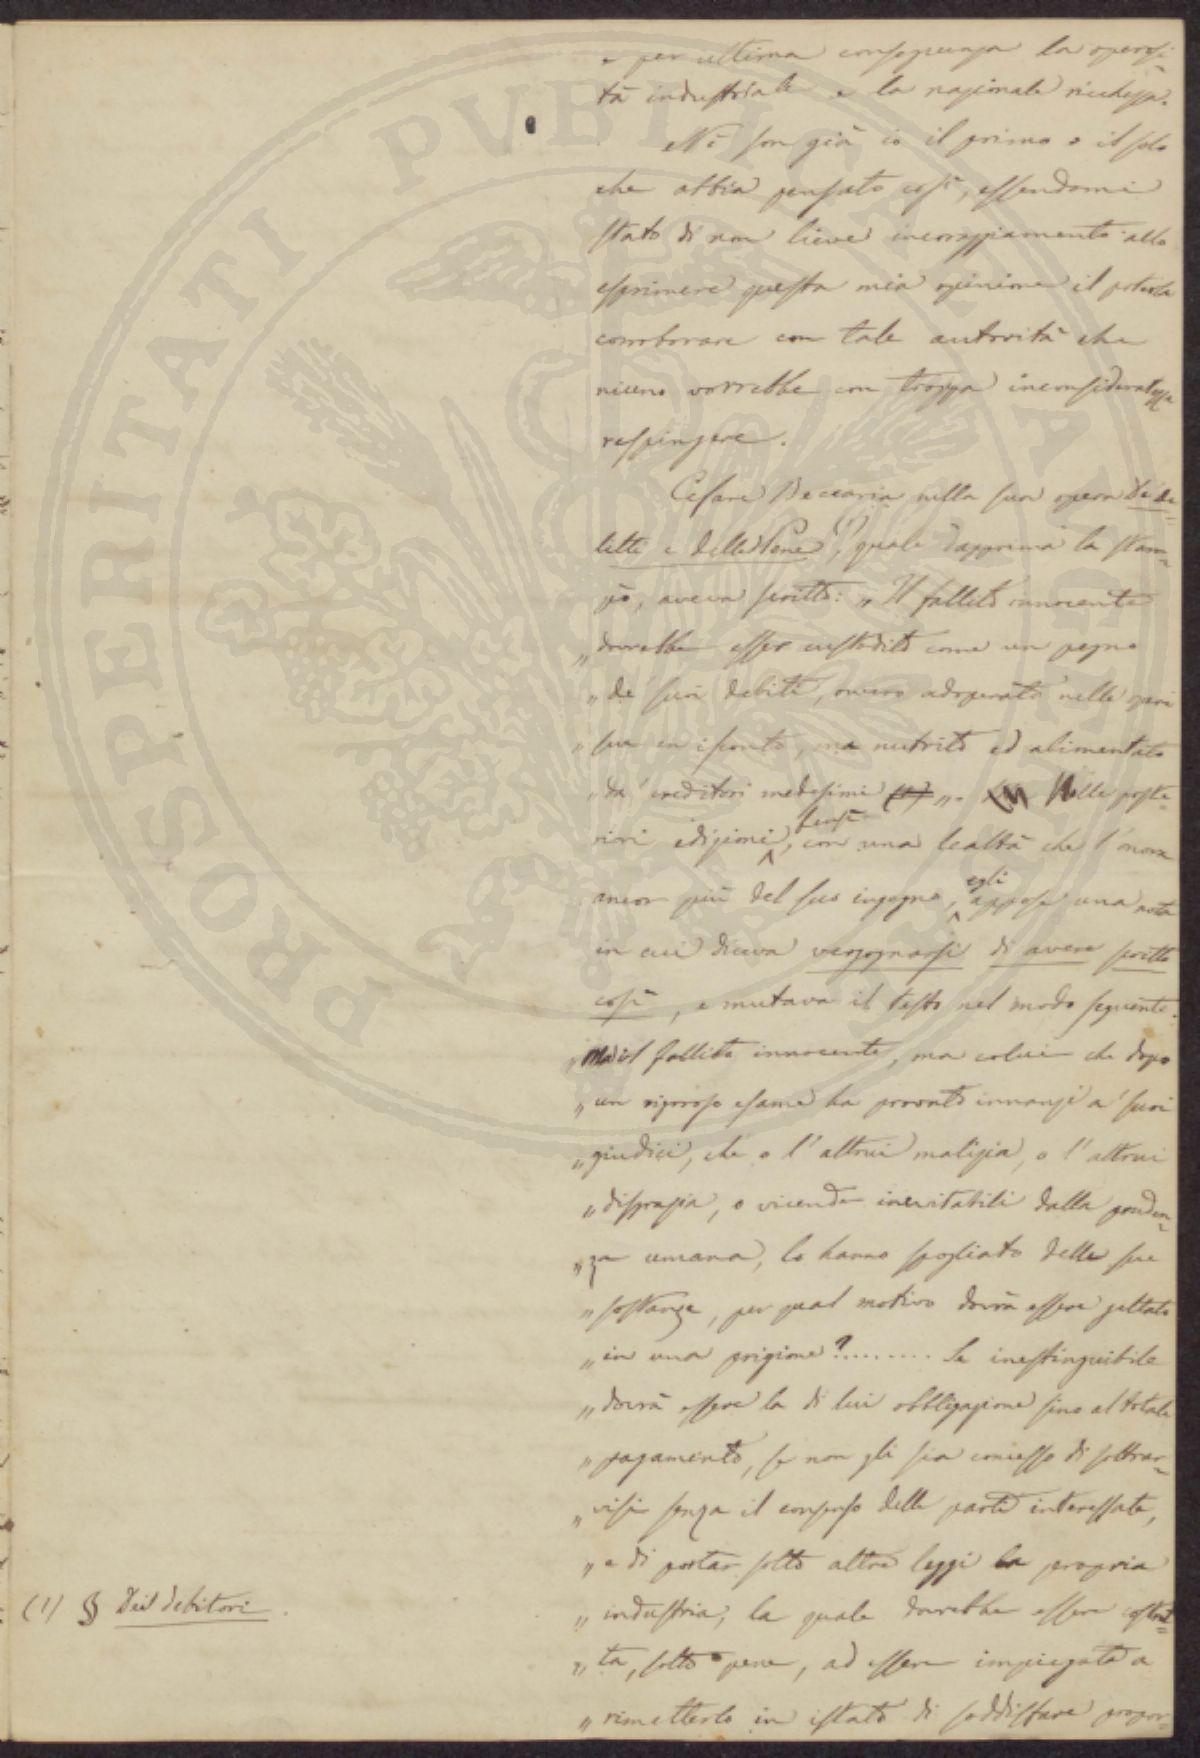 e per ultima conseguenza la operosi-
tà industriale e la nazionale ricchezza.
Nè son già io il primo o il solo
che abbia pensato così, essendomi
stato di non lieve incoraggiamento allo
esprimere questa mia opinione il poterla
corroborare con tale autorità che
niuno vorrebbe con troppa inconsideratezza
respingere.
Cesare Beccaria nella sua opera Dei De-
litti e delle Pene (1), quale dapprima la stam-
pò, aveva scritto: „ Il fallito innocente
„ dovrebbe esser custodito come un pegno
„ de' suoi debiti, ovvero adoperato nelle opere
„ sue in isconto, ma nutrito ed alimentato
„ da' creditori medesimi (1) „. Nelle poste-
riori edizioni, bensì con una lealtà che l'onora
ancor più del suo ingegno, egli appose una nota
in cui diceva vergognarsi di avere scritto
così, e mutava il testo nel modo seguente.
„ Ma il fallito innocente, ma colui che dopo
„ un rigoroso esame ha provato innanzi a' suoi
„ giudici, che o l'altrui malizia, o l'altrui
„ disgrazia, o vicende inevitabili dalla pruden-
„ za umana, lo hanno spogliato delle sue
„ sostanze, per qual motivo dovrà essere gettato
„ in una prigione?......... Se inestinguibile
„ dovrà essere la di lui obbligazione fino al totale
„ pagamento, se non gli sia concesso di sottrar-
„ visi senza il consenso delle parti interessate,
„ e di portar sotto altre leggi la propria
„ industria, la quale dovrebbe essere costret-
„ ta, sotto pene, ad essere impiegata a
„ rimetterlo in istato di soddisfare propor-
(1) § Dei debitori.
PROSPERITATI PUBLICAE